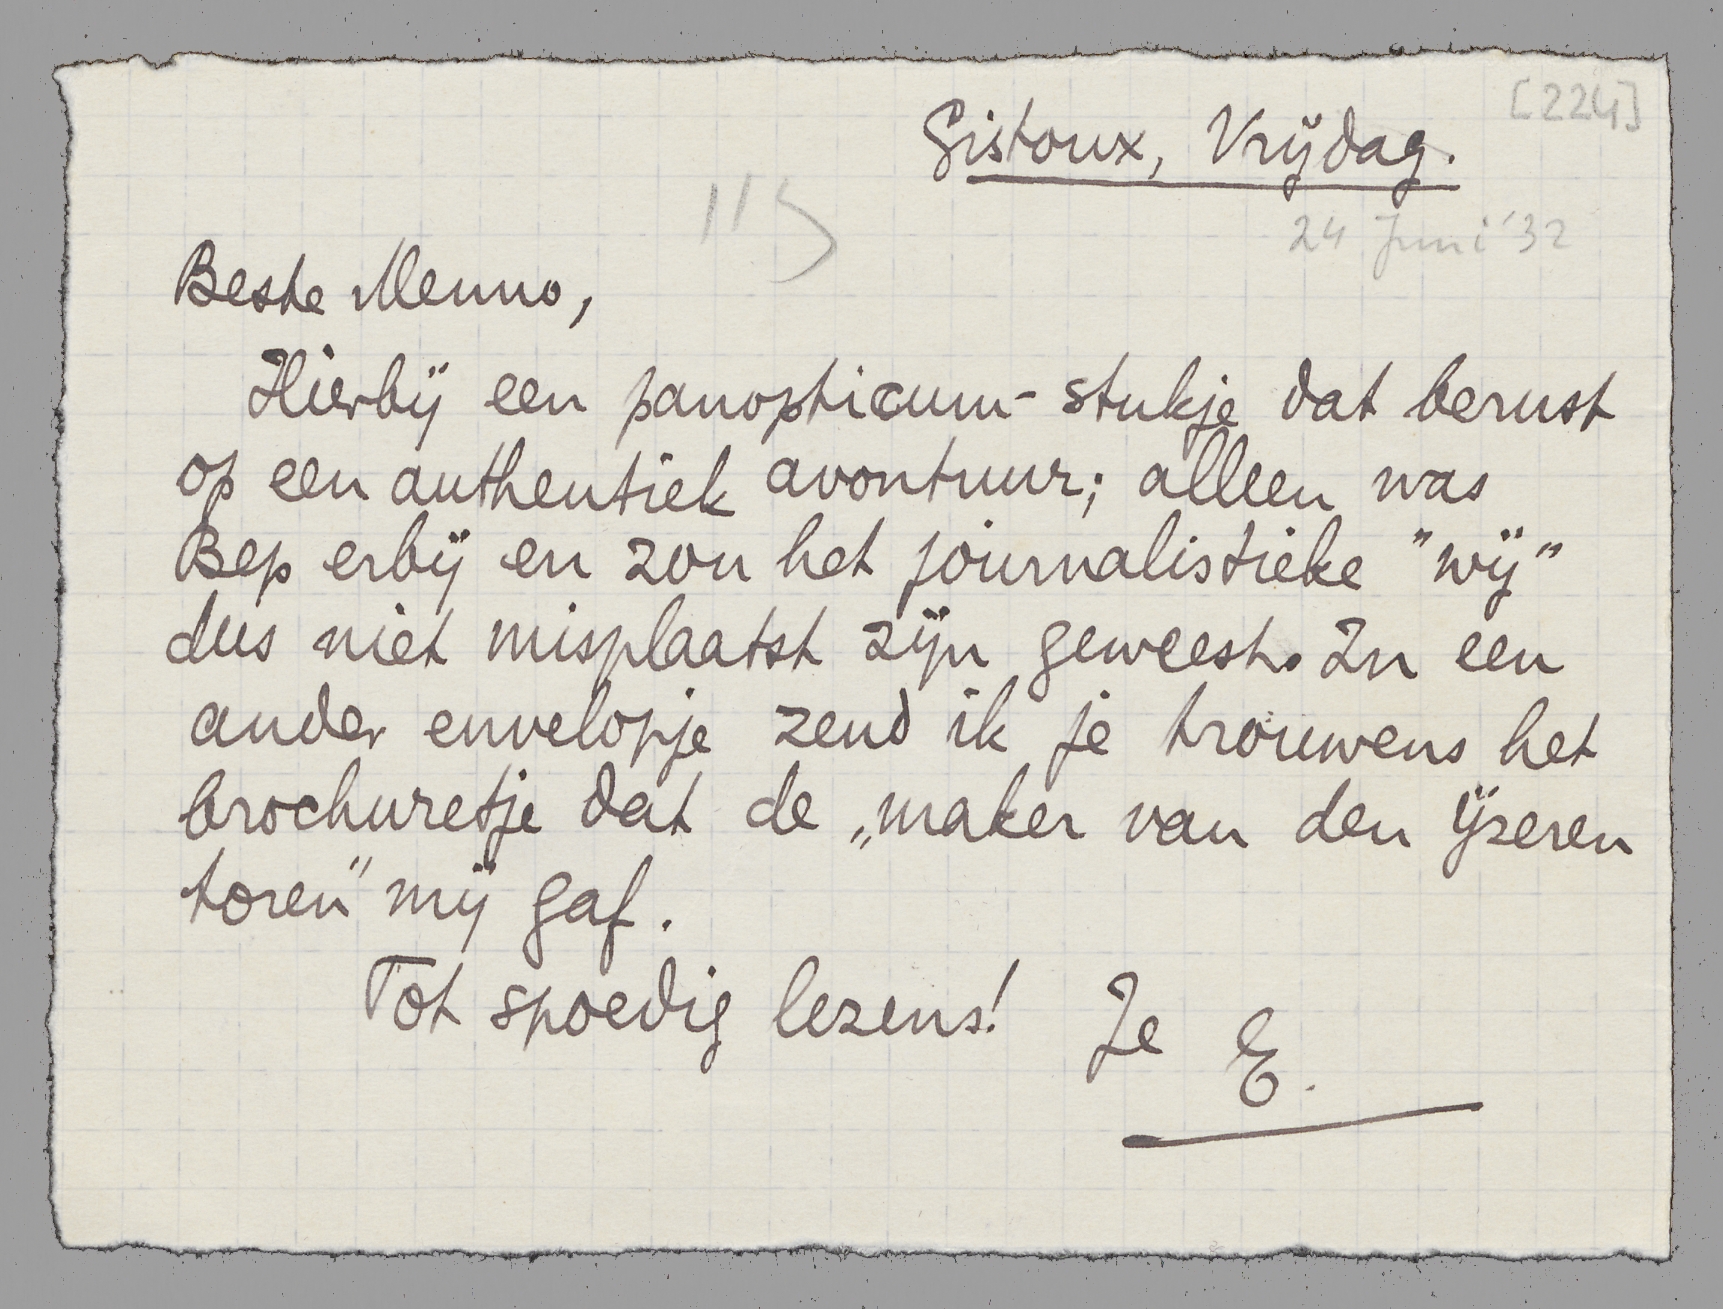 [224]
Gistoux, Vrijdag.
115
24 Juni '32
Beste Menno,
Hierbij een panopticum-stukje dat berust
op een authentiek avontuur; alleen was
Bep erbij en zou het journalistieke "wij"
dus niet misplaatst zijn geweest. In een
ander envelopje zend ik je trouwens het
brochuretje dat de „maker van den ijzeren
toren" mij gaf.
Tot spoedig lezens! Je E.